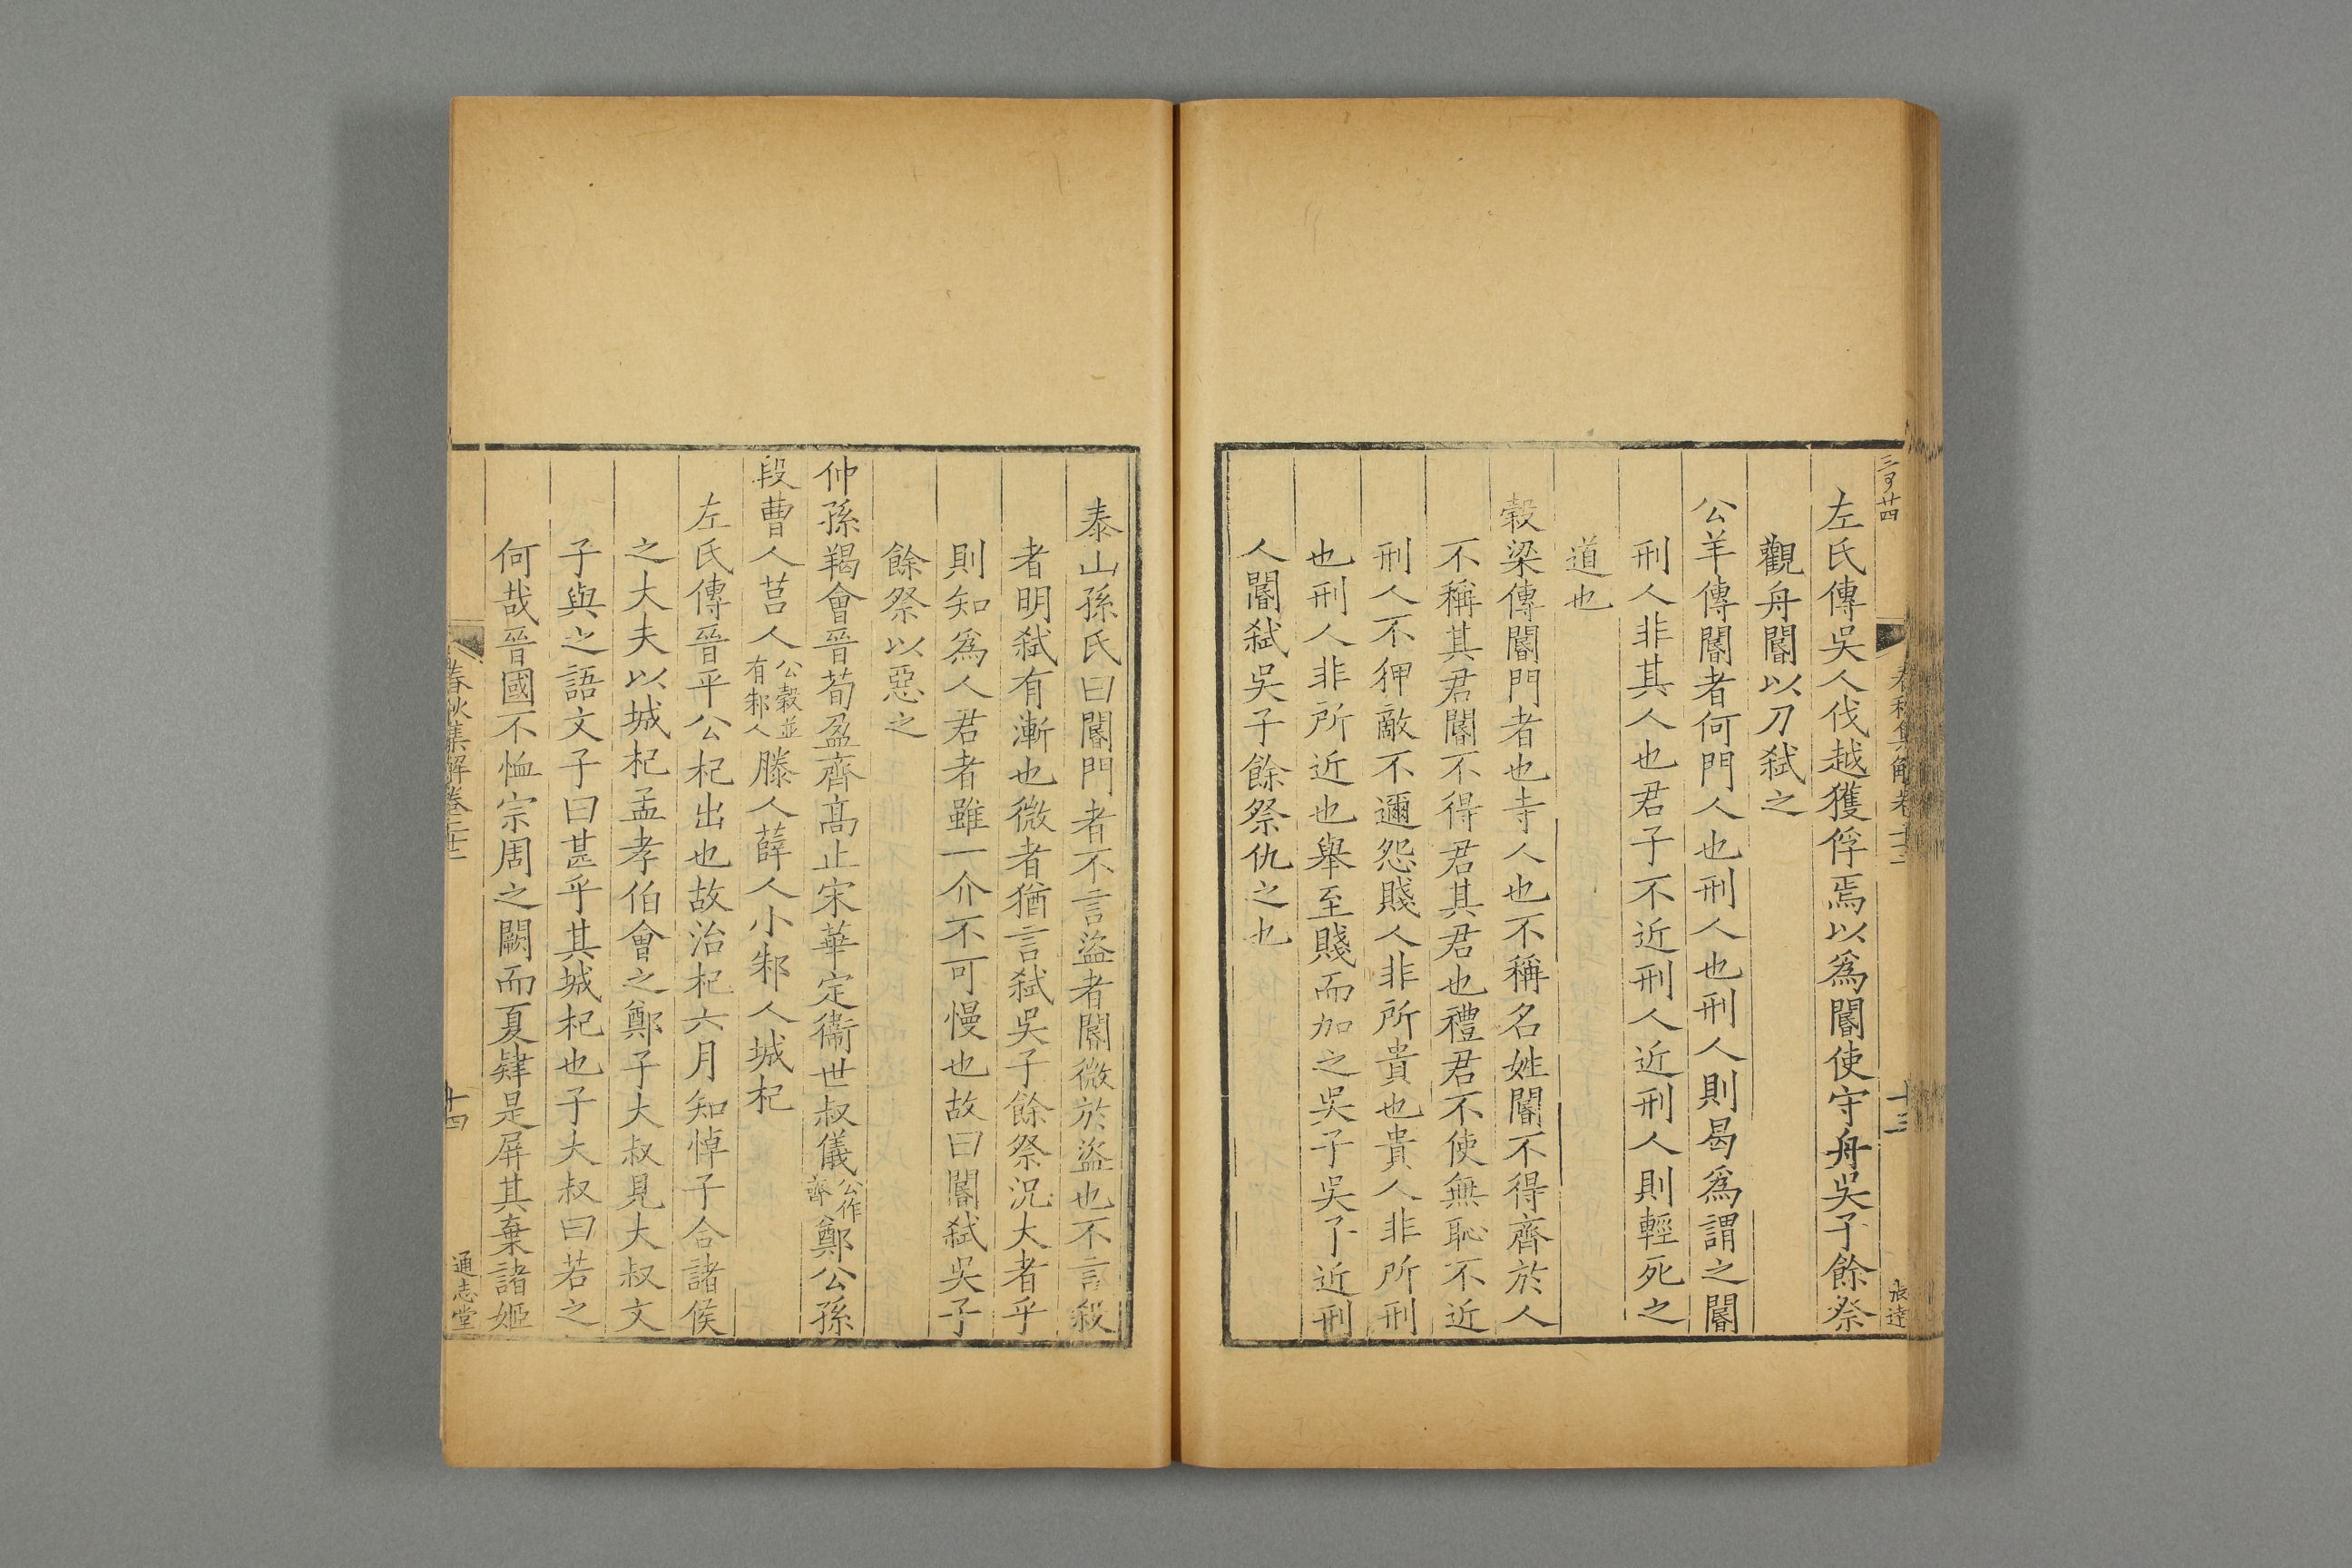 左氏傳吳人伐越獲俘焉以爲閽使守舟吳子餘祭
觀舟閽以刀弑之
公羊傳閽者何門人也刑人也刑人則曷爲謂之閽
刑人非其人也君子不近刑人近刑人則輕死之
道也
穀梁傳閽門者也寺人也不稱名姓閽不得齊於人
不稱其君閽不得君其君也禮君不使無恥不近
刑人不狎敵不邇怨賤人非所貴也貴人非所刑
也刑人非所近也舉至賤而加之吳子吳子近刑
人閽弑吳子餘祭仇之也
泰山孫氏曰閽門者不言盜者閽微於盜也不言殺
者明弑有漸也微者猶言弑吳子餘祭況大者乎
則知爲人君者雖一介不可慢也故曰閽弑吳子
餘祭以惡之
仲孫羯會晉荀盈齊高止宋華定衞世叔儀公作齊鄭公孫
段曹人莒人公穀並有邾人滕人薛人小邾人城杞
左氏傳晉平公杞出也故治杞六月知悼子合諸侯
之大夫以城杞孟孝伯會之鄭子大叔見大叔文
子與之語文子曰甚乎其城杞也子大叔曰若之
何哉晉國不恤宗周之闕而夏肄是屏其棄諸姬
春秋集解卷二十二
十四
通志堂